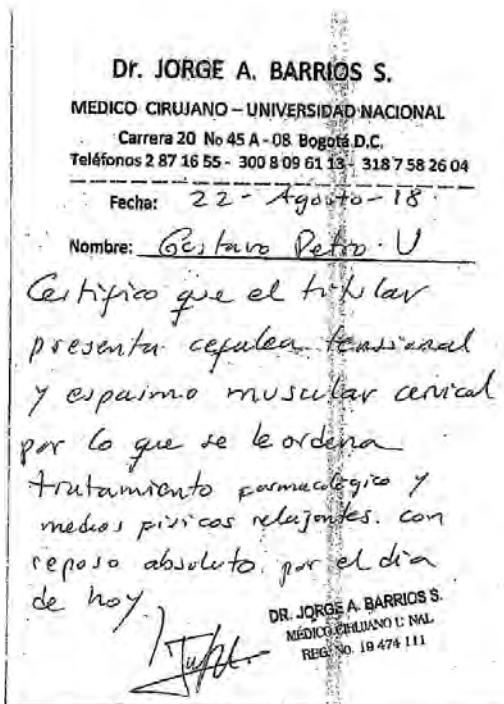 Dr. JORGE A. BARRIOS S.
MEDICO CIRUJANO – UNIVERSIDAD NACIONAL
Carrera 20 No 45 A - 08 Bogotá D.C.
Teléfonos 2 87 16 55 - 300 8 09 61 13 - 318 7 58 26 04
Fecha: 22 - Agosto - 18
Nombre: Gustavo Petro. U
Certifico que el titular
presenta cefalea tensional
y espasmo muscular cervical
por lo que se le ordena
tratamiento farmacológico y
medios físicos relajantes. con
reposo absoluto. por el día
de hoy.
DR. JORGE A. BARRIOS S.
MÉDICO CIRUJANO U. NAL
REG. No. 19 474 111